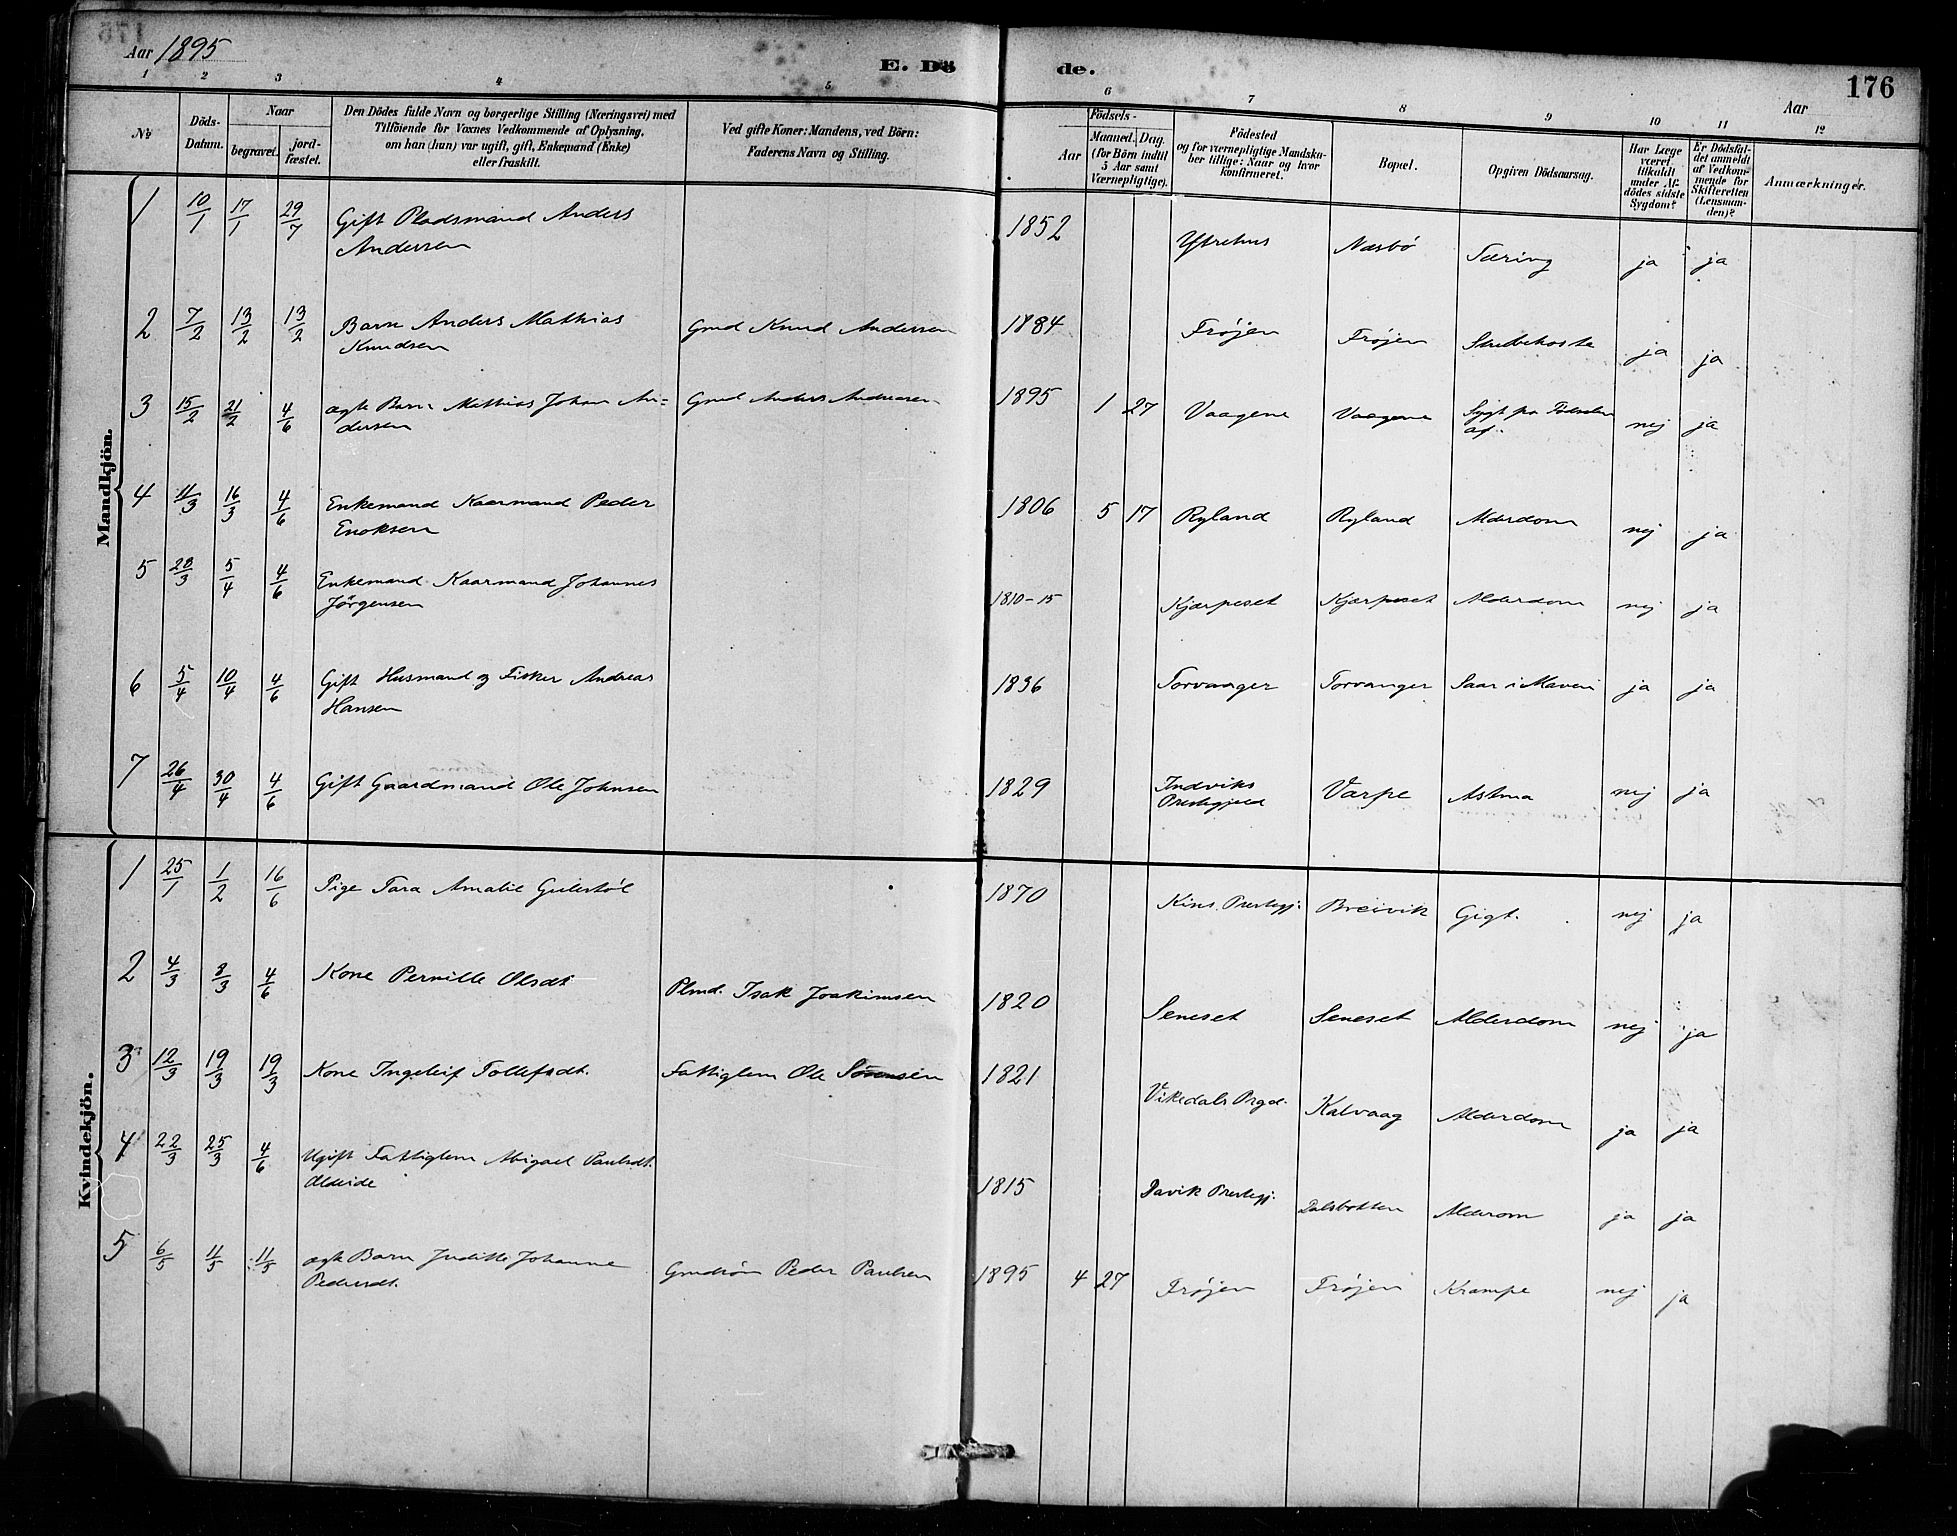 Aar 1895
E. Dö de.
176
Aar
1 2 3 4 5 6 7 8 9 10 11 12
No
Döds-Datum.
Naar
begravet.
jord-fæstet.
Den Dödes fulde Navn og borgerlige Stilling (Næringsvei) med
Tilföiende for Voxnes Vedkommende af Oplysning,
om han (hun) var ugift, gift, Enkemand (Enke)
eller fraskilt.
Ved gifte Koner: Mandens, ved Börn:
Faderens Navn og Stilling.
Födsels-
Aar
Maaned. Dag.
(for Börn indtil
5 Aar samt
Værnepligtige).
Födested
og for værnepligtige Mandska-
ber tillige: Naar og hvor
konfirmeret.
Bopæl.
Opgiven Dödsaarsag.
Har Læge
været
tilkaldt
under Af-
dödes sidste
Sygdom?
Er Dödsfal-
det anmeldt
af Vedkom-
mende for
Skifteretten
(Lensman-
den)?
Anmærkninger.
Mandkjön.
1 10/1 17/1 29/7 Gift Pladsmand Anders 1852 Ytrehus Næsbö Tæring ja ja
Andersen
2 7/2 13/2 13/2 Barn Anders Mathias Gmd Knud Andersen 1884 Fröjen Fröjen Strubehoste ja ja
Knudsen
3 15/2 21/2 4/6 ægte Barn Mathias Johan An= Gmd Anders Andreasen 1895 1 27 Vaagene Vaagene Sygt fra Födselen nej ja
dersen af.
4 11/3 16/3 4/6 Enkemand Kaarmand Peder 1806 5 17 Ryland Ryland Alderdom nej ja
Enoksen
5 28/3 5/4 4/6 Enkemand Kaarmand Johannes 1810-15 Kjærpeset Kjærpeset Alderdom nej ja
Jörgensen
6 5/4 10/4 4/6 Gift Husmand og Fisker Andreas 1836 Torvanger Torvanger Saar i Maven ja ja
Hansen
7 26/4 30/4 4/6 Gift Gaardmand Ole Johnsen 1829 Indviks Varpe Astma nej ja
Prestegjeld
Kvindekjön.
1 25/1 1/2 16/6 Pige Tara Amalie 1870 Kins Prestegj. Breivik Gigt. nej ja
2 4/3 8/3 4/6 Kone Pernille Olsdt Plmd. Isak Joakimsen 1820 Seneset Seneset Alderdom nej ja
3 12/3 19/3 19/3 Kone Ingeleif Tollefsdt. Fattiglem Ole Sörensen 1821 Vikedals Prgd. Kalvaag Alderdom ja ja
4 22/3 25/3 4/6 Ugift Fattiglem Abigael Paulsdt. 1815 Davik Prestegj. Dalsbotten Alderom ja ja
Oldeide
5 6/5 11/5 11/5 ægte Barn Juditte Johanne Gmdsön Peder Paulsen 1895 4 27 Fröjen Fröjen Krampe nej ja
Pedersdt.